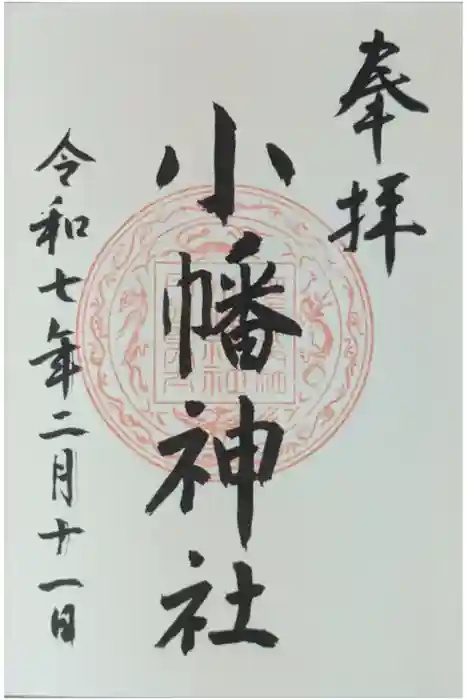 奉拝
小幡神社
令和七年二月十一日